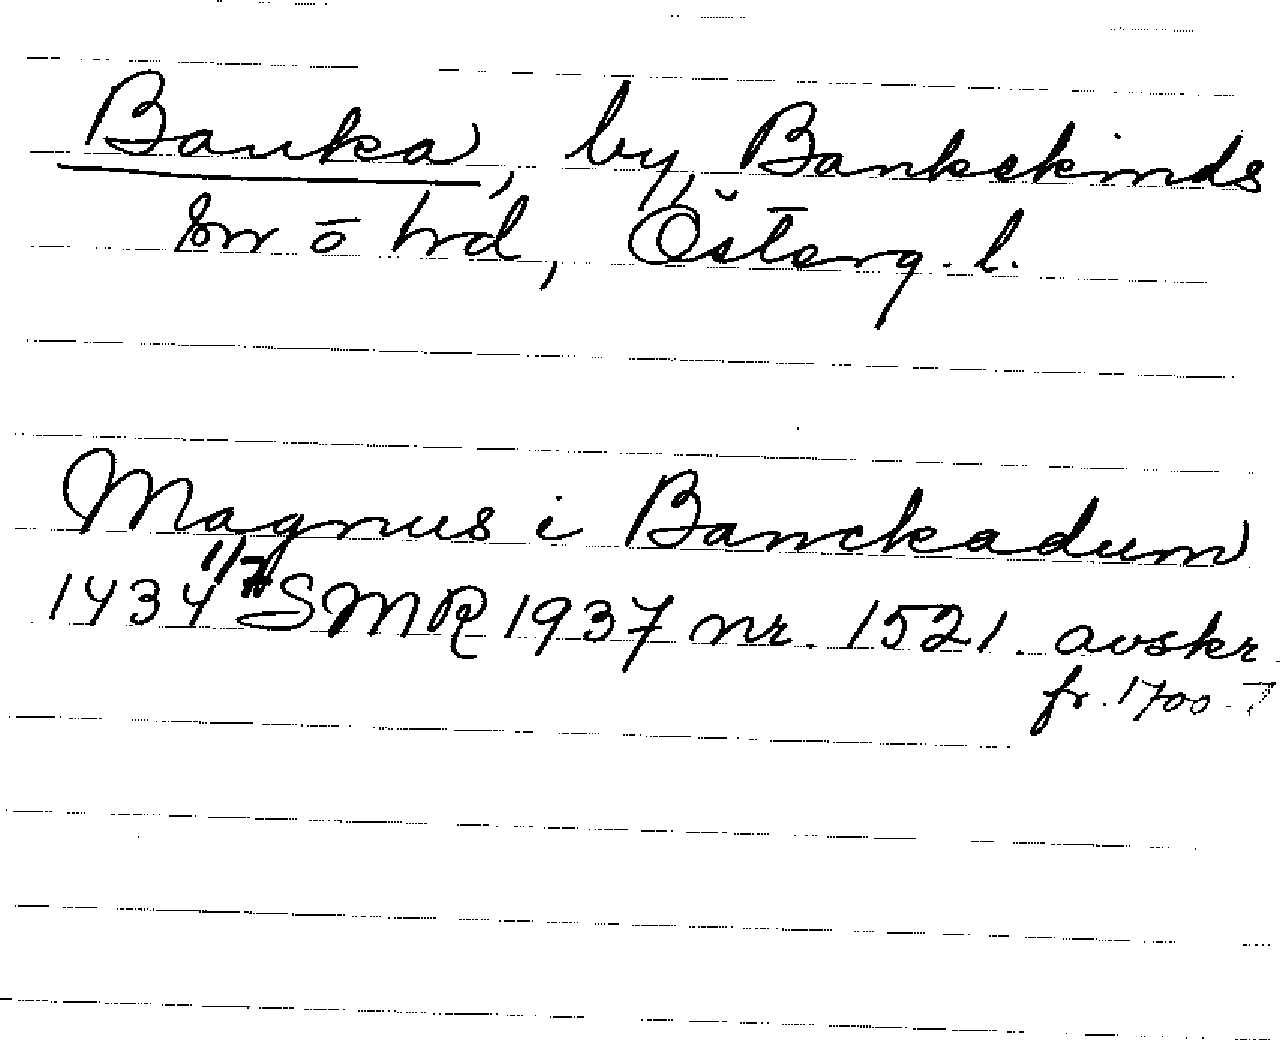 Banka, by, Bankekinds
sn o hd, Österg. l.
Magnus i Banckadum
1434 1/7 SMR 1937 nr. 1521. avskr
fr. 1700-